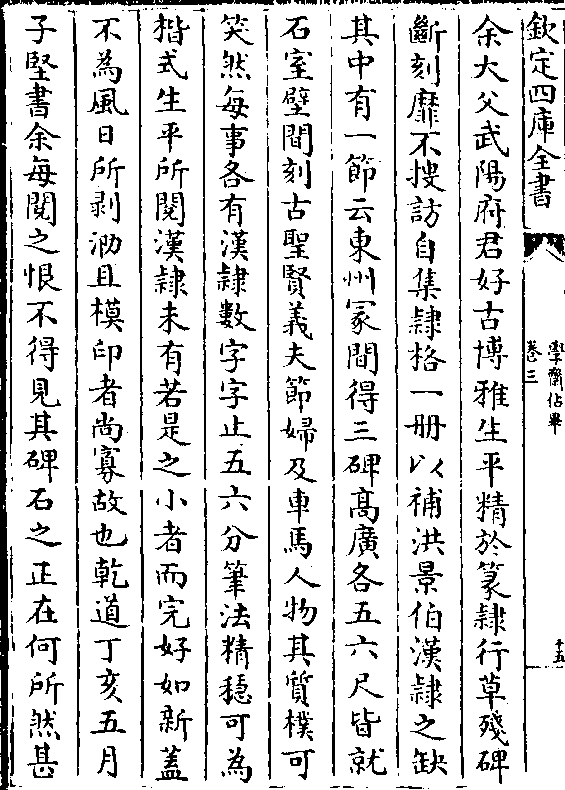 欽定四庫全書
學齋佔畢
卷三
十五
余大父武陽府君好古博雅生平精於篆隸行草殘碑
斷刻靡不搜訪自集隸格一册以補洪景伯漢隸之缺
其中有一節云東州冢間得三碑高廣各五六尺皆就
石室壁間刻古聖賢義夫節婦及車馬人物其質樸可
笑然每事各有漢隸數字字止五六分筆法精穩可為
楷式生平所閱漢隸未有若是之小者而完好如新蓋
不為風日所剥泐且模印者尚寡故也乾道丁亥五月
子堅書余每閱之恨不得見其碑石之正在何所然甚